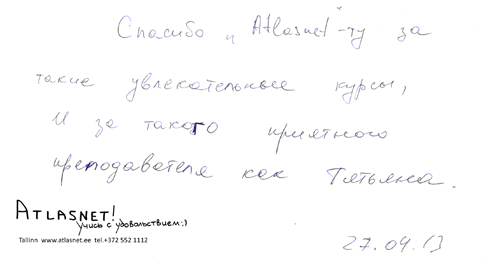 Спасибо "Atlasnet"-ту за
такие увлекательные курсы,
И за такого приятного
преподавателя как Татьяна.
ATLASNET!
учись с удовольствием:)
Tallinn www.atlasnet.ee tel.+372 552 1112
27.04.13